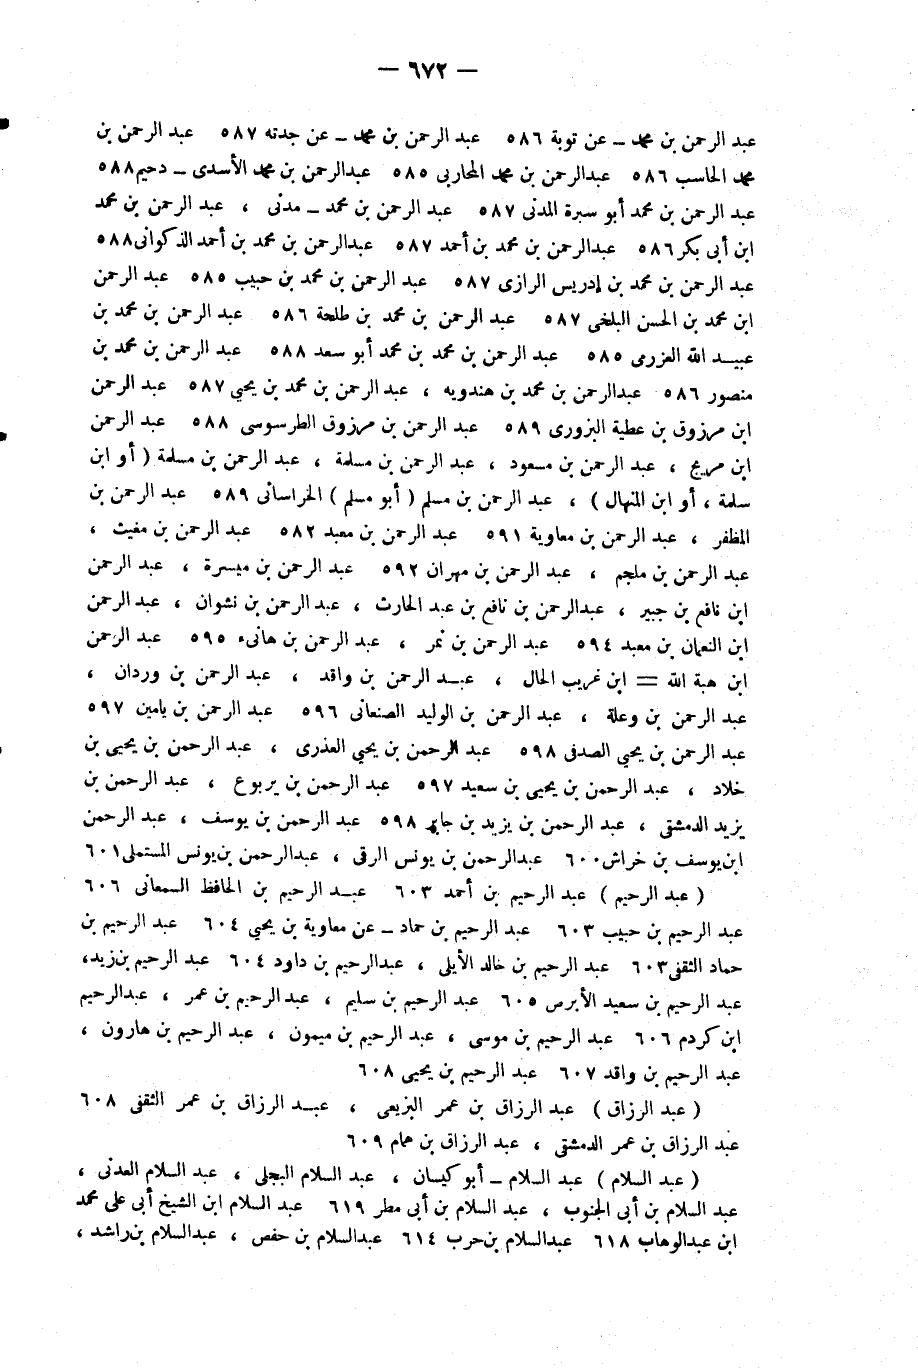 — ٦٧٢ —
عبد الرحمن بن محمد ــ عن توبة ٥٨٦ عبد الرحمن بن محمد ــ عن جدته ٥٨٧ عبد الرحمن بن
محمد الحاسب ٥٨٦ عبدالرحمن بن محمد المحاربى ٥٨٥ عبدالرحمن بن محمد الأسدى ــ دحيم٥٨٨
عبد الرحمن بن محمد أبو سبرة المدنى ٥٨٧ عبد الرحمن بن محمد ــ مدنى ، عبد الرحمن بن محمد
ابن أبى بكر ٥٨٦ عبدالرحمن بن محمد بن أحمد ٥٨٧ عبدالرحمن بن محمد بن أحمد الذكوانى٥٨٨
عبد الرحمن بن محمد بن إدريس الرازى ٥٨٧ عبد الرحمن بن محمد بن حبيب ٥٨٥ عبد الرحمن
ابن محمد بن الحسن البلخى ٥٨٧ عبد الرحمن بن محمد بن طلحة ٥٨٦ عبد الرحمن بن محمد بن
عبيــد الله العزرى ٥٨٥ عبد الرحمن بن محمد بن محمد أبو سعد ٥٨٨ عبد الرحمن بن محمد بن
منصور ٥٨٦ عبدالرحمن بن محمد بن هندويه ، عبد الرحمن بن محمد بن يحيى ٥٨٧ عبد الرحمن
ابن مرزوق بن عطية البزورى ٥٨٩ عبد الرحمن بن مرزوق الطرسوسى ٥٨٨ عبد الرحمن
ابن مريج ، عبد الرحمن بن مسعود ، عبد الرحمن بن مسلمة ، عبد الرحمن بن مسلمة ( أو ابن
سلمة ، أو ابن المنهال ) ، عبد الرحمن بن مسلم ( أبو مسلم ) الخراسانى ٥٨٩ عبد الرحمن بن
المظفر ، عبد الرحمن بن معاوية ٥٩١ عبد الرحمن بن معبد ٥٨٢ عبد الرحمن بن مغيث ،
عبد الرحمن بن ملجم ، عبد الرحمن بن مهران ٥٩٢ عبد الرحمن بن ميسرة ، عبد الرحمن
ابن نافع بن جبير ، عبدالرحمن بن نافع بن عبد الحارث ، عبد الرحمن بن نشوان ، عبد الرحمن
ابن النعمان بن معبد ٥٩٤ عبد الرحمن بن نمر ، عبد الرحمن بن هانىء ٥٩٥ عبد الرحمن
ابن هبة الله = ابن غريب الحال ، عبــد الرحمن بن واقد ، عبد الرحمن بن وردان ،
عبد الرحمن بن وعلة ، عبد الرحمن بن الوليد الصنعانى ٥٩٦ عبد الرحمن بن يامين ٥٩٧
عبد الرحمن بن يحيى الصدفى ٥٩٨ عبد الرحمن بن يحيى العذرى ، عبد الرحمن بن يحيى بن
خلاد ، عبد الرحمن بن يحيى بن سعيد ٥٩٧ عبد الرحمن بن يربوع ، عبد الرحمن بن
يزيد الدمشقى ، عبد الرحمن بن يزيد بن جابر ٥٩٨ عبد الرحمن بن يوسف ، عبد الرحمن
ابن يوسف بن خراش ٦٠٠ عبدالرحمن بن يونس الرقى ، عبدالرحمن بن يونس المستملى ٦٠١
( عبد الرحيم ) عبد الرحيم بن أحمد ٦٠٣ عبــد الرحيم بن الحافظ السمعانى ٦٠٦
عبد الرحيم بن حبيب ٦٠٣ عبد الرحيم بن حماد ــ عن معاوية بن يحيى ٦٠٤ عبد الرحيم بن
حماد الثقفى ٦٠٣ عبد الرحيم بن خالد الأيلى ، عبدالرحيم بن داود ٦٠٤ عبد الرحيم بن زيد،
عبد الرحيم بن سعيد الأبرص ٦٠٥ عبد الرحيم بن سليم ، عبد الرحيم بن عمر ، عبدالرحيم
ابن كردم ٦٠٦ عبد الرحيم بن موسى ، عبد الرحيم بن ميمون ، عبد الرحيم بن هارون ،
عبد الرحيم بن واقد ٦٠٧ عبد الرحيم بن يحيى ٦٠٨
( عبد الرزاق ) عبد الرزاق بن عمر البزيعى ، عبــد الرزاق بن عمر الثقفى ٦٠٨
عبد الرزاق بن عمر الدمشقى ، عبد الرزاق بن همام ٦٠٩
( عبد السلام ) عبد السلام ــ أبو كيسان ، عبد السلام البجلى ، عبد السلام العدنى ،
عبد السلام بن أبى الجنوب ، عبد السلام بن أبى مطر ٦١٩ عبد السلام ابن الشيخ أبى على محمد
ابن عبدالوهاب ٦١٨ عبدالسلام بن حرب ٦١٤ عبدالسلام بن حفص ، عبدالسلام بن راشد ،